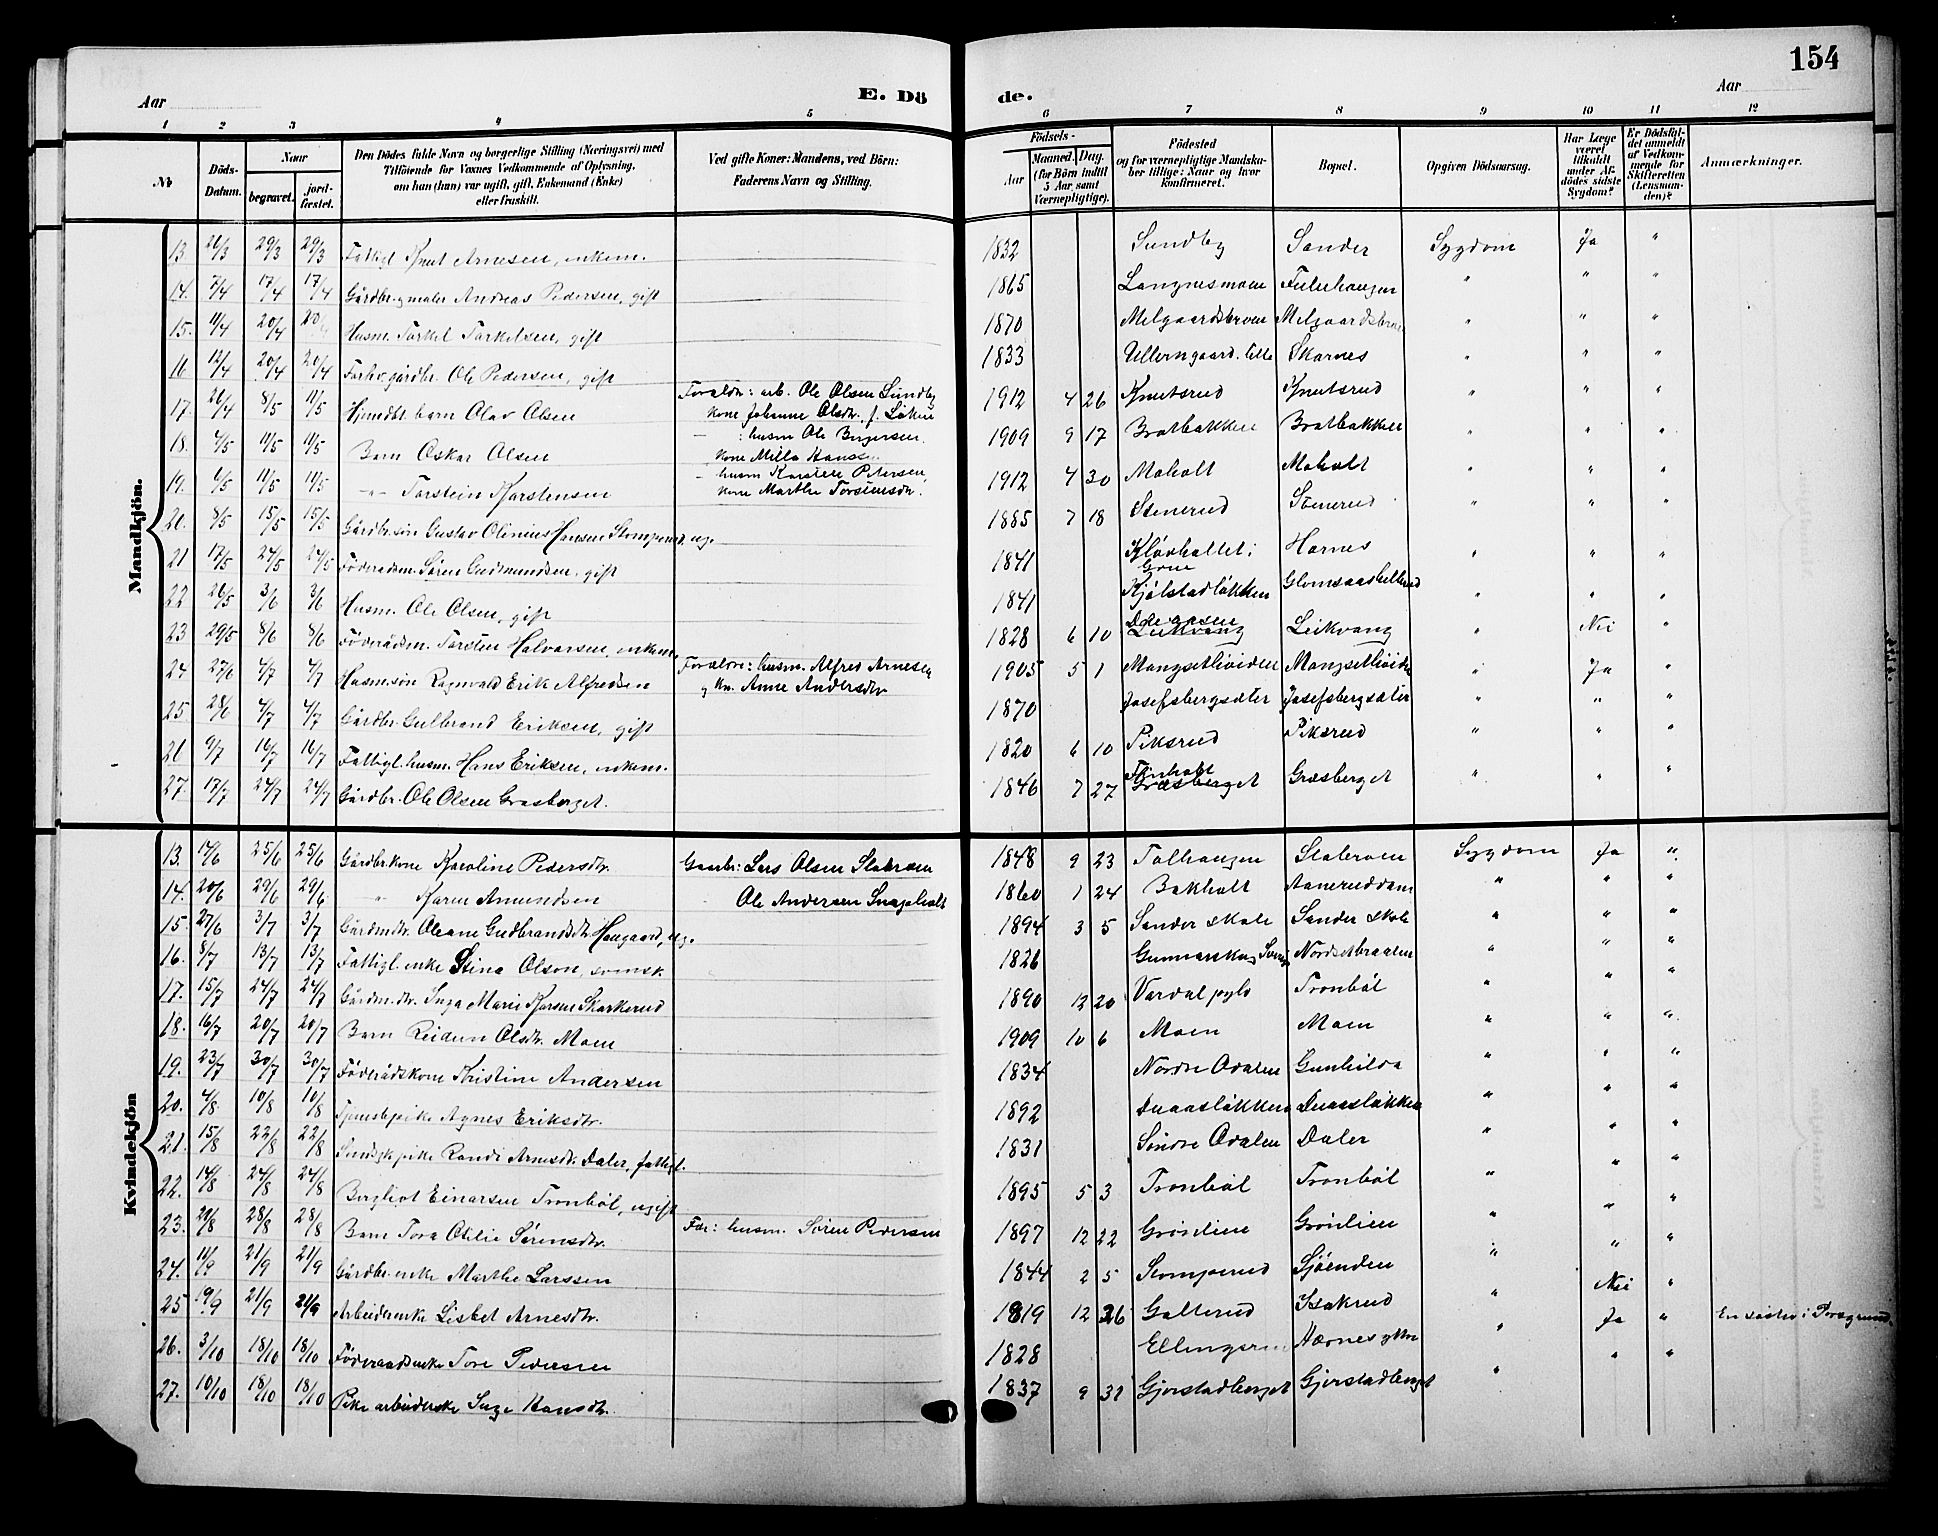 154
Aar E. Dö de. Aar
1 2 3 4 5 6 7 8 9 10 11 12
No Döds-Datum. Naar begravet. jord-fæstet. Den Dödes fulde Navn og borgerlige Stilling (Næringsvei) med Tilföiende for Voxnes Vedkommende af Oplysning, om han (hun) var ugift, gift, Enkemand (Enke) eller fraskilt. Ved gifte Koner: Mandens, ved Börn: Faderens Navn og Stilling. Födsels- Aar Maaned. Dag. (for Börn indtil 5 Aar samt Værnepligtige). Födested og for værnepligtige Mandskaber tillige: Naar og hvor konfirmeret. Bopæl. Opgiven Dödsaarsag. Har Læge været tilkaldt under Afdödes sidste Sygdom? Er Dödsfaldet anmeldt af Vedkommende for Skifteretten (Lensmanden)? Anmærkninger.
Mandkjön.
13. 26/3 29/3 29/3 Fattigl. Knut Arnesen, enkem. 1832 Sundby Sander Sygdom Ja "
14. 7/4 17/4 17/4 Gårdbr. og maler Andreas Pedersen, gift 1865 Langnesmoen " " "
15. 11/4 20/4 20/4 Husm. Torkel Torkelsen, gift 1870 Melgaardsbroen Melgaardsbroen " " "
16 12/4 20/4 20/4 Forhv. gårdbr. Ole Pedersen, gift 1833 Ullerngaard. lille Skarnes " " "
17. 26/4 8/5 11/5 Hjemdbt. barn Olav Olsen Foræld: arb. Ole Olsen Sundby kone Johanne Olsdtr. f. Löken 1912 4 26 Knutsrud Knutsrud " " "
18. 4/5 11/5 11/5 Barn Oskar Olsen – : husm Ole Birgersen, kone Milla Hanssen 1909 9 17 Bratbakken Bratbakken " " "
19. 6/5 11/5 11/5 –"– Torstein Karstensen – husm Karsten Petersen, kone Marthe Torstensdtr. 1912 4 30 Moholt Moholt " " "
20. 8/5 15/5 15/5 Gårdbr.sön Gustav Olinius Hansen Stomperud, ug. 1885 7 18 Stenerud Stenerud " " "
21 17/5 24/5 24/5 Föderådsm. Sören Gudmundsen, gift 1841 Klövholtet i Grue Hornes " " "
22 26/5 3/6 3/6 Husm. Ole Olsen, gift 1841 Kjölstadlökken Glomsaashellerud " " "
23 29/5 8/6 8/6 Föderådsm. Torsten Halvorsen, enkem. 1828 6 10 Leikvang Leikvang " Nei "
24 27/6 4/7 4/7 Husm.sön Ragnvald Erik Alfredsen Forældre: husm. Alfred Arnesen og kn. Anne Andersdtr 1905 5 1 Mangsetlividen Mangsetlividen " Ja "
25 28/6 4/7 4/7 Gårdbr. Gulbrand Eriksen, gift 1870 Josefsbergsæter Josefsbergsæter " " "
26 9/7 16/7 16/7 Fattigl. husm. Hans Eriksen, enkem. 1820 6 10 Piksrud Piksrud " " "
27. 17/7 24/7 24/7 Gårdbr. Ole Olsen Græsberget. 1846 7 27 Græsberget Græsberget " " "
Kvindekjön
13. 14/6 25/6 25/6 Gårdbr.kone Karoline Pedersdtr. Gaardbr: Lars Olsen Slabroen 1848 9 23 Tolhaugen Slabroen Sygdom Ja "
14. 20/6 29/6 29/6 " Karen Amundsen Ole Andersen Snapholt 1860 1 24 Bakholt Aaneruddam " " "
15. 27/6 3/7 3/7 Gårdmdtr. Oleane Gudbrandsdtr. Haugaard, ug. 1894 3 5 Sander skole Sander skole " " "
16. 8/7 13/7 13/7 Fattigl. enke Stina Olson, svensk. 1826 Gunnarskog Sverig Nordsetbraaten " " "
17. 15/7 24/7 24/7 Gårdm.dtr. Inga Marie Karsen Skarkerud 1890 12 20 Vardal pgld Tronböl " " "
18. 16/7 20/7 20/7 Barn Reidun Olsdtr. Moen 1909 10 6 Moen Moen " " "
19. 23/7 30/7 30/7 Föderådskone Kristine Andersen 1834 Nordre Odalen Gunhilda " " "
20. 4/8 10/8 10/8 Tjenestepike Agnes Eriksdtr. 1892 Duaaslökken Duaaslökken " " "
21. 15/8 22/8 22/8 pike Randi Arnesdtr. Daler, fattigl. 1831 Söndre Odalen Daler " " "
22. 14/8 24/8 24/8 Bergliot Einarsen Tronböl, ugift 1895 5 3 Tronböl Tronböl " " "
23. 20/8 28/8 28/8 Barn Tora Otilie Sörensdtr. Far: husm. Sören Pedersen 1897 12 22 Grönliene Grönlien " " "
24. 11/9 21/9 21/9 Gårdbr. enke Marthe Larssen 1844 2 5 Stomperud Sjöenden " Nei "
25 19/9 21/9 21/9 Arbeiderenke Lisbet Arnesdtr. 1819 12 26 Galterud Isakrud " Ja " En søster i Porsgrund.
26. 3/10 18/10 18/10 Föderaadsenke Tore Pedersen 1828 Ellingsrud Nærnes ytre " " "
27. 10/10 18/10 18/10 Pike arbeiderske Inge Hansdtr. 1837 9 31 Gjerstadberget Gjerstadberget "